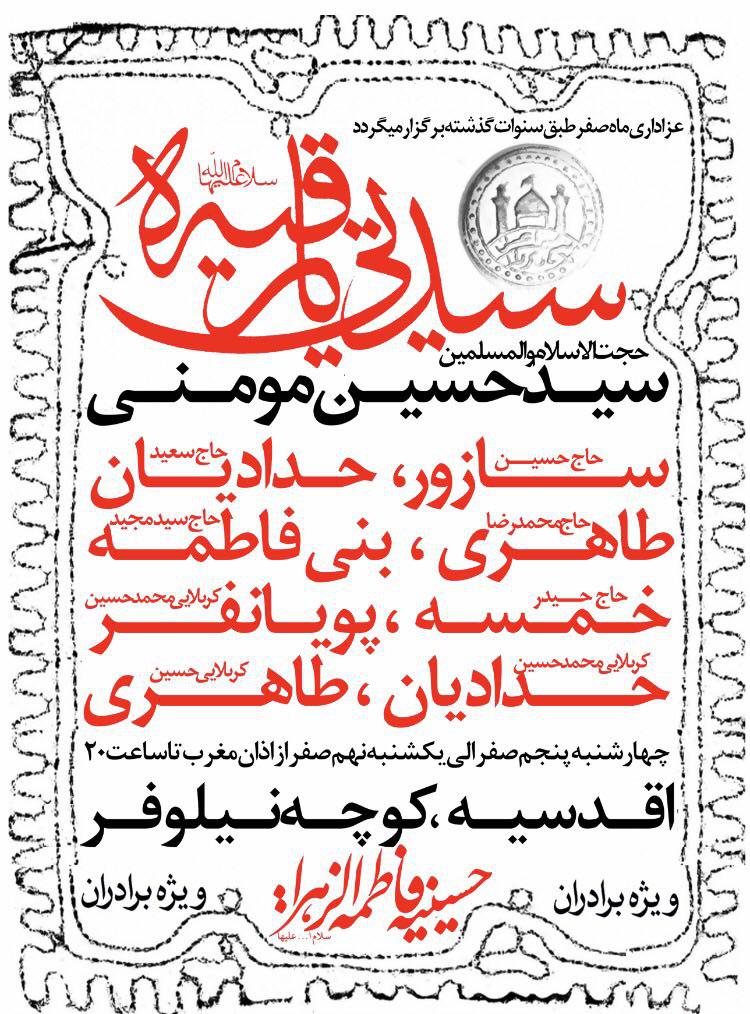 عزاداری ماه صفر طبق سنوات گذشته برگزار میگردد
سیدتی یا رقیه
سلام الله علیها
حجت الاسلام والمسلمین
سید حسین مومنی
حاج حسین سازور، حاج سعید حدادیان
حاج محمدرضا طاهری، حاج سید مجید بنی فاطمه
حاج حیدر خمسه، کربلایی محمدحسین پویانفر
کربلایی محمدحسین حدادیان، کربلایی حسین طاهری
چهارشنبه پنجم صفر الی یکشنبه نهم صفر از اذان مغرب تا ساعت ۲۰
اقدسیه، کوچه نیلوفر
ویژه برادران
حسینیه فاطمه الزهرا
سلام ا... علیها
ویژه برادران